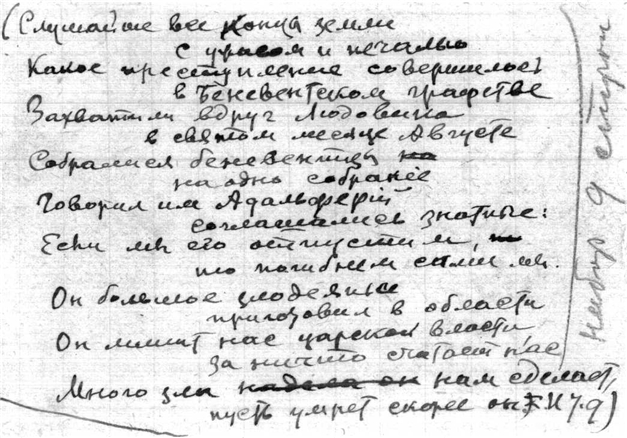 (Слушайте все конца земли
с ужасом и печалью
Какое преступление совершилось
в Беневентском графстве
Захватили вдруг Людовика
в святом месяце Августе
Собрались беневентцы на
на одно собранiе
Говорил им Адальферiй
соглашались знатные:
Если мы его отпустим,
то погибнем сами мы.
Он большое злодеянье
приготовил в области
Он лишит нас царской власти
за ничто считает нас
Много зла надела он нам сделает,
пусть умрет скорее он, И т.д)
набор 9 строки